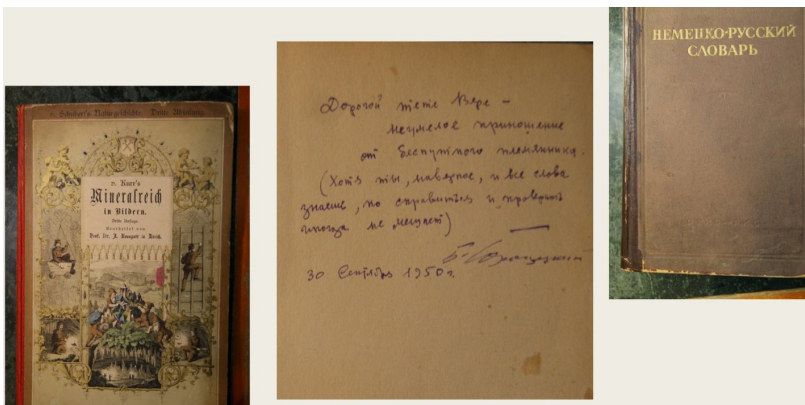 v. Schubert's Naturgeschichte. Dritte Abteilung.
v. Kurr's
Mineralreich
in Bildern.
Dritte Auflage.
Bearbeitet von
Prof. Dr. A. Kenngott in Zürich.
Дорогой тете Вере –
неумелое приношение
от беспутного племянника.
(Хотя ты, наверное, и все слова
знаешь, но справиться и проверить
иногда не мешает)
30 Сентября 1950г.
НЕМЕЦКО-РУССКИЙ
СЛОВАРЬ